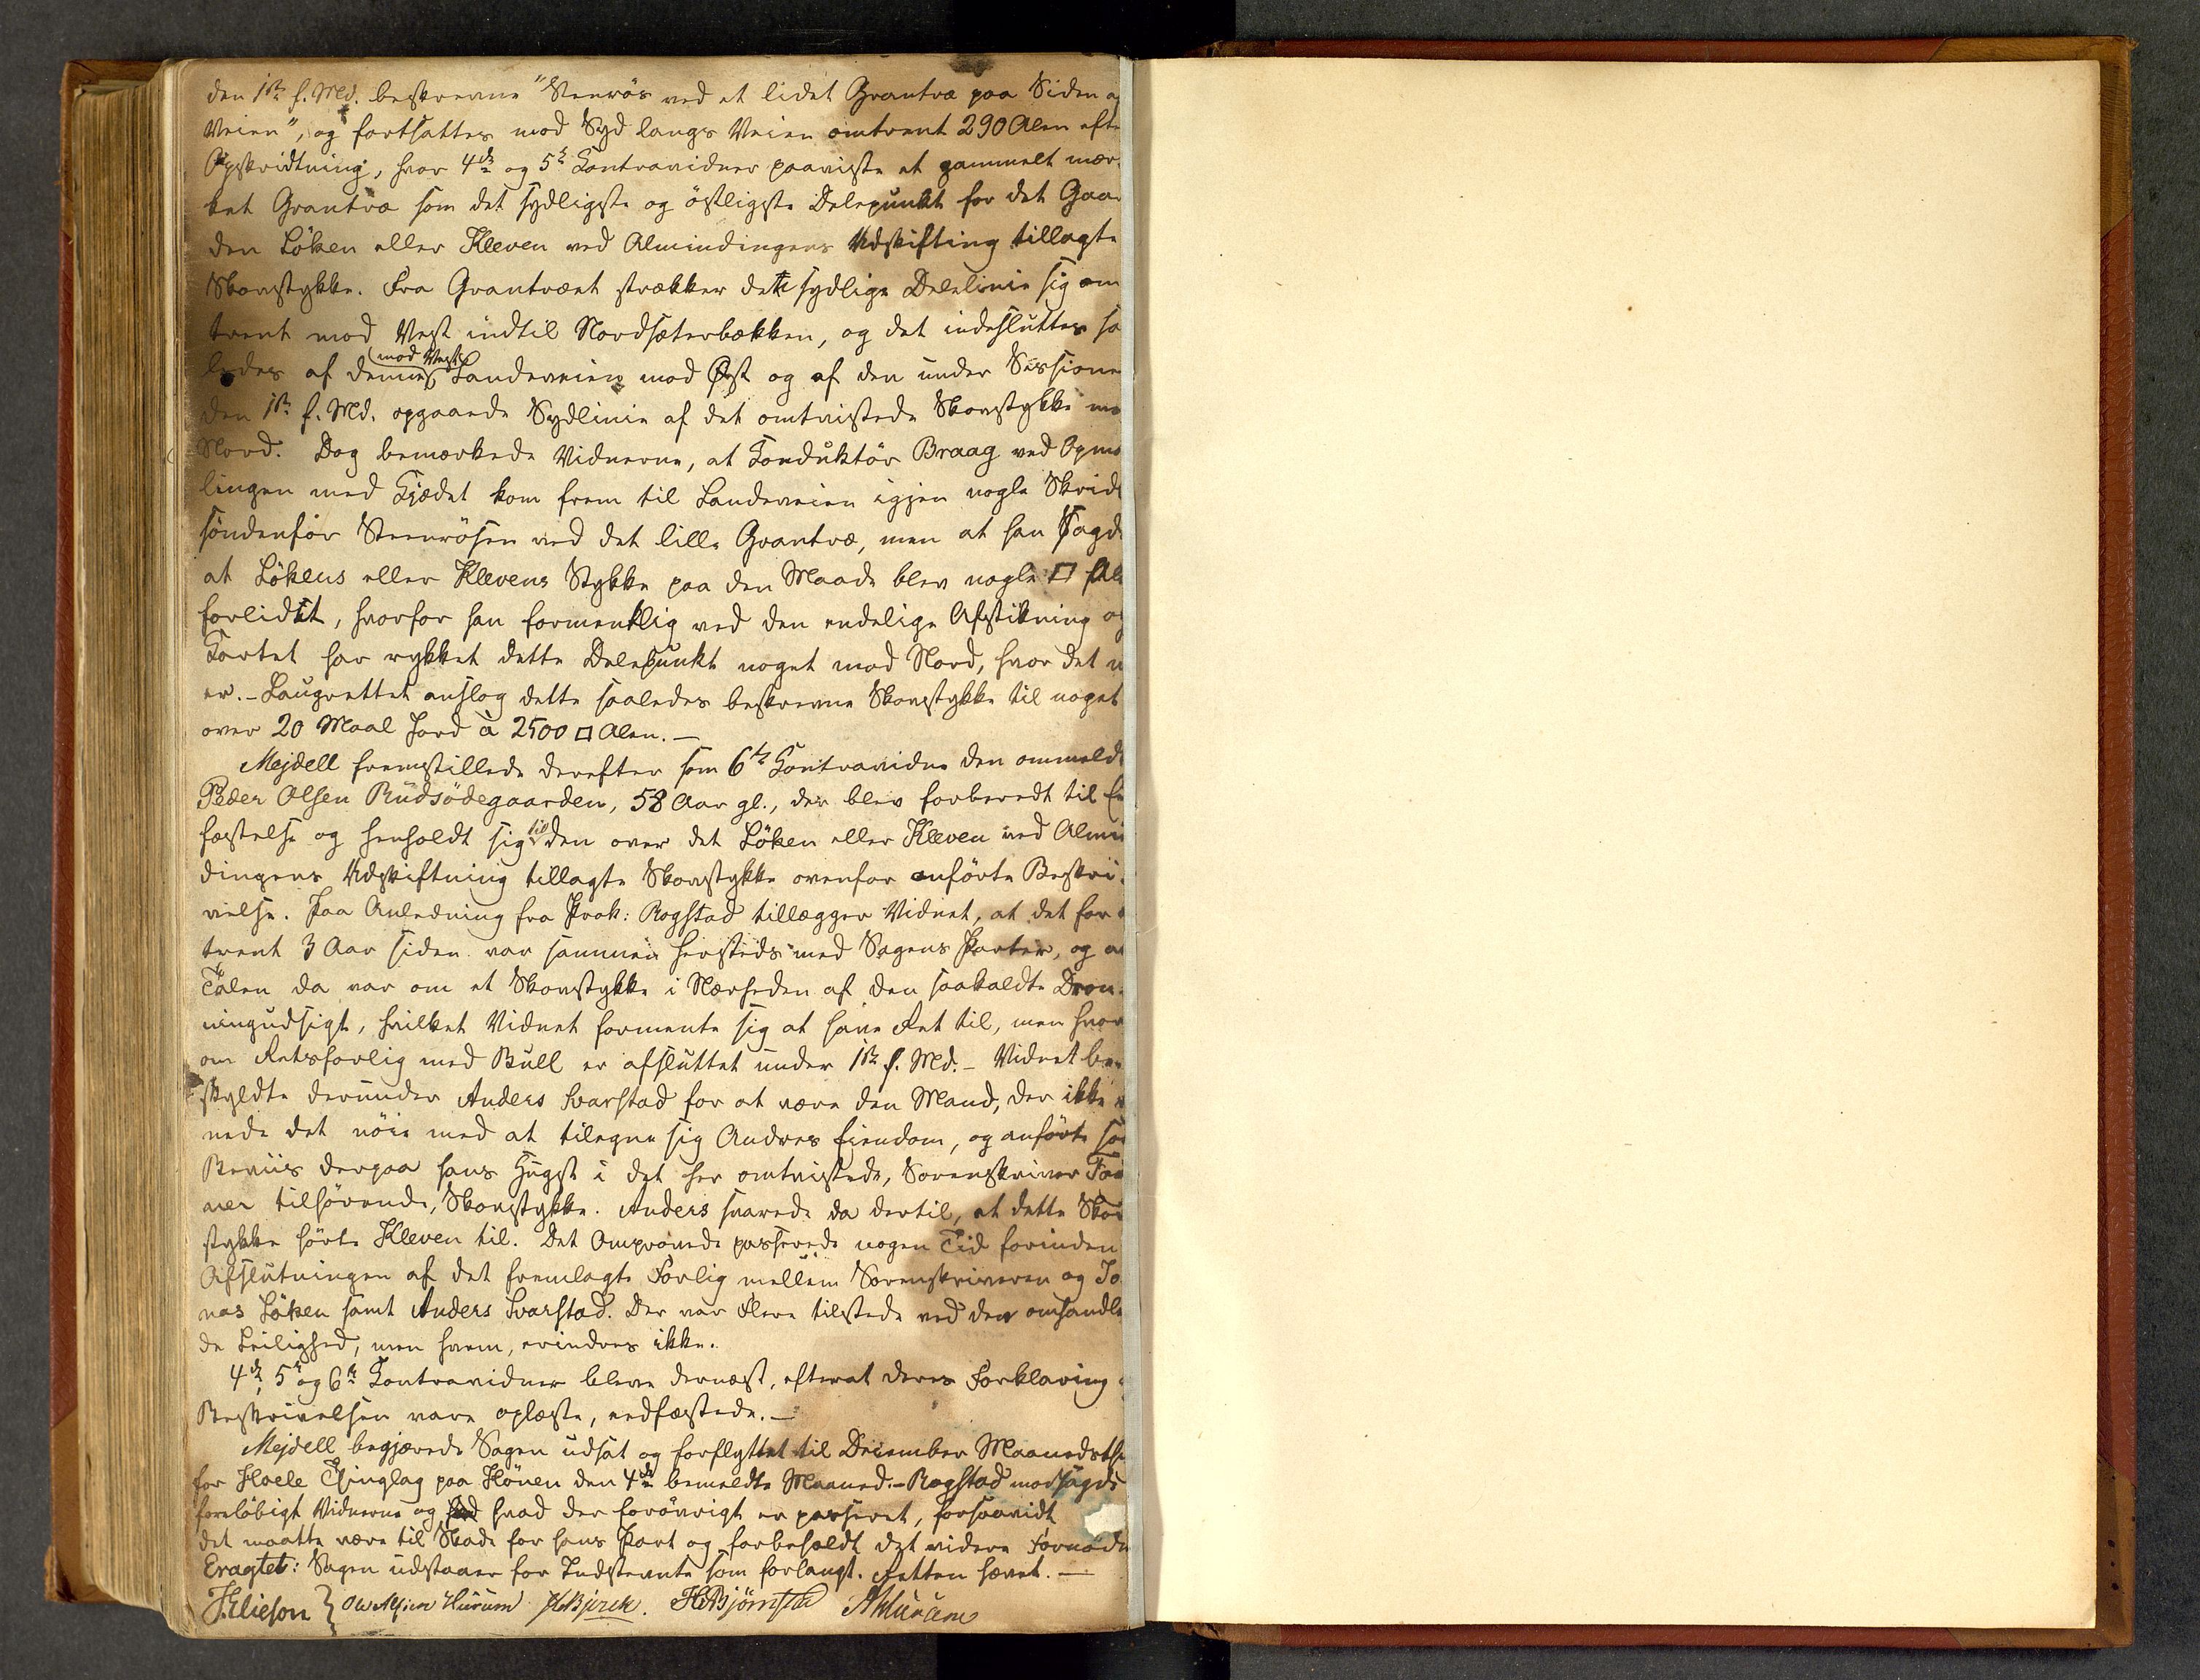 den 1ste f. Md. beskrevne "Steenrös ved et lidet Grantræ paa Siden a
Veien", og fortsattes mod Syd langs Veien omtrent 290 Alen efte
Opskridtning, hvor 4de og 5te Contravidner paaviste et gammelt mær-
ket Grantræ som det sydligste og östligste Delepunkt for det Gaar
den Löken eller Kleven ved Almindingens Udskifting tillagte
Skovstykke. Fra Grantræet strækker dette sydlige Delelinie sig om
trent mod Vest indtil Nordsæterbækken, og det indesluttes sa
ledes af denne (mod Vest) Landeveien mod Øst og af den under Sessione
den 1ste f. Md. opgaaede Sydlinie af det omtvistede Skovstykke mo
Nord. Dog bemærkede Vidnerne, at Conduktör Braag ved Opmaa
lingen med Kjædet kom frem til Landeveien igjen nogle Skridt
söndenfor Steenrösen ved det lille Grantræ, men at han sagde
at Lökens eller Klevens Stykke paa den Maade blev nogle □ Al
forlidet, hvorfor han formentlig ved den endelige Afstikning og
Cartet har rykket dette Delepunkt noget mod Nord, hvor det n
er. - Laugrettet anslog dette saaledes beskrevne Skovstykke til noget
over 20 Maal Jord à 2500 □ Alen. —
Mejdell fremstillede derefter som 6te Contravidne den ommeldte
Peder Olsen Rudsödegaarden, 58 Aar gl., der blev forberedt til E
fæstelse og henholdt sig til den over det Löken eller Kleven ved Almin
dingens Udskiftning tillagte Skovstykke ovenfor anförte Beskri-
velse. Paa Anledning fra Prok: Rogstad tillægger Vidnet, at det for
trent 3 Aar siden var sammen hersteds med Sagens Parter, og at
Talen da var om et Skovstykke i Nærheden af den saakaldte Dron-
ningudsigt, hvilket Vidnet formente sig at have Ret til, men hvor
om Retsforlig med Bull er afsluttet under 1ste f. Md. - Vidnet be-
skyldte derunder Anders Svarstad for at være den Mand, der ikke
nede det nöie med at tilegne sig Andres Eiendom, og anförte som
Beviis derpaa hans Hugst i det her omtvistede, Sorenskriver
tilhörende, Skovstykke. Anders svarede da dertil, at dette Skov
stykke hörte Kleven til. Det Omprovede passerede nogen Tid forinden
Afslutningen af det fremlagte Forlig mellem Sorenskriveren og Jo
nas Löken samt Anders Svarstad. Der var Flere tilstede ved den omhandle
de Leilighed, men hvem, erindres ikke.
4de, 5te og 6te Contravidner bleve dernæst, efterat deres Forklaring
Beskrivelsen vare oplæste, eedfæstede. —
Mejdell begjærede Sagen udsat og forflyttet til December Maanedsth
for Hole Thinglag paa Hönen den 4de bemeldte Maaned. - Rogstad modsagde
foreløbigt Vidnerne og hvad der forövrigt er passeret, forsaavidt
det maatte være til Skade for hans Part og forbeholdt det videre Fornødne
Eragtet: Sagen udstaaer for Indstevnte som forlangt. Retten hævet. —
J. Elieson } Ole Hurum HBjerck. HBjörnstad AHurum